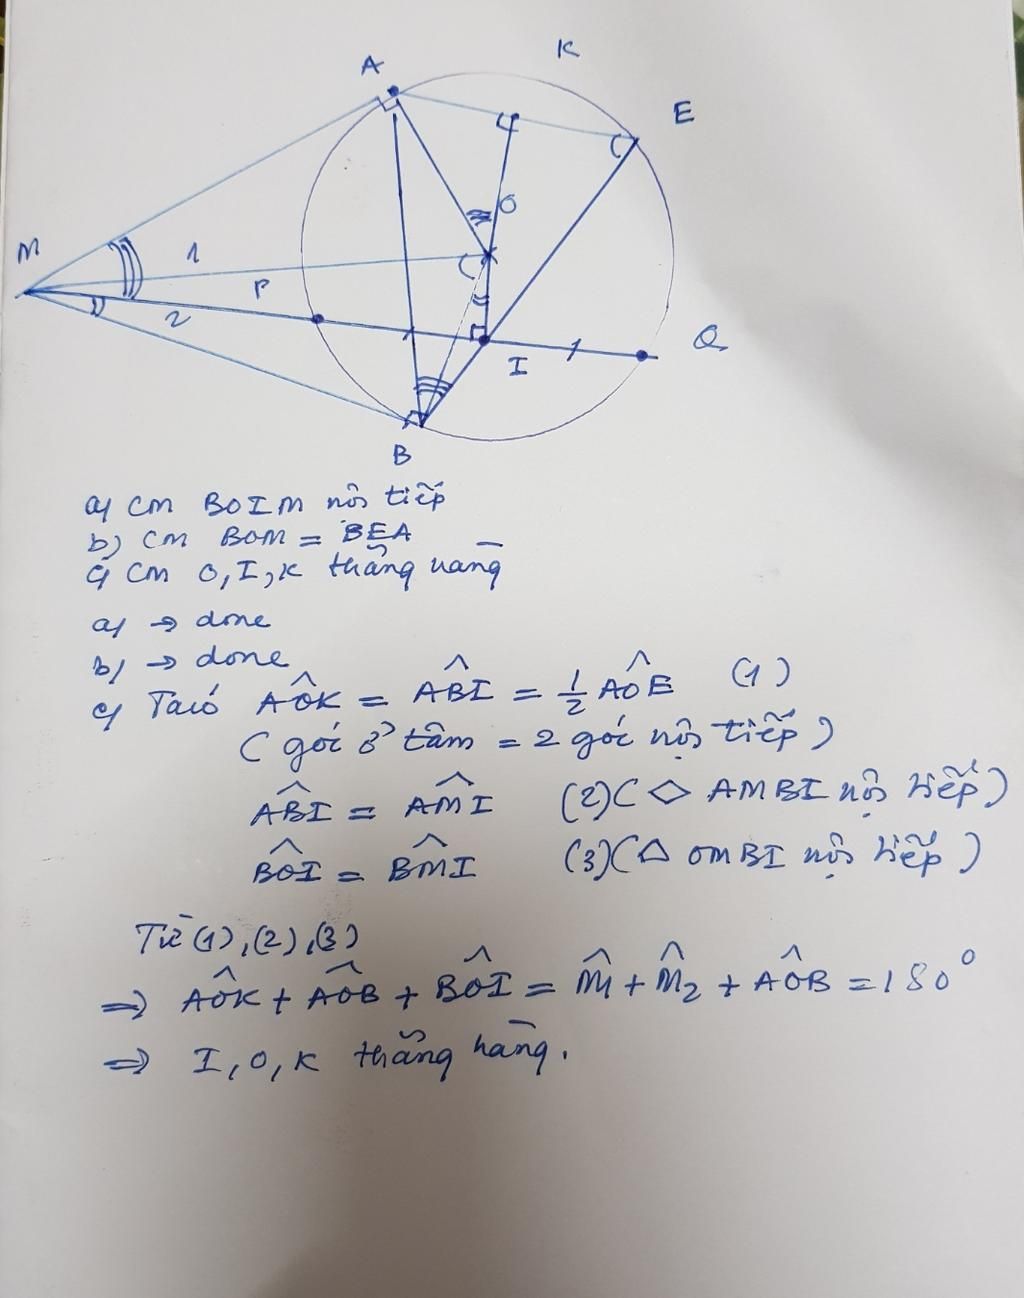 A
K
E
M
1
O
P
2
I
Q
B
a) CM BOIM nội tiếp
b) CM BOM = BEA
c) CM O, I, K thẳng hàng
a) → done
b) → done
c) Ta có AÔK = AB̂I = 1/2 AÔE (1)
(góc ở tâm = 2 góc nội tiếp)
AB̂I = AM̂I (2) (◇ AMBI nội tiếp)
BÔI = BM̂I (3) (△ OMBI nội tiếp)
Từ (1), (2), (3)
=> AÔK + AÔB + BÔI = M̂1 + M̂2 + AÔB = 180°
=> I, O, K thẳng hàng.